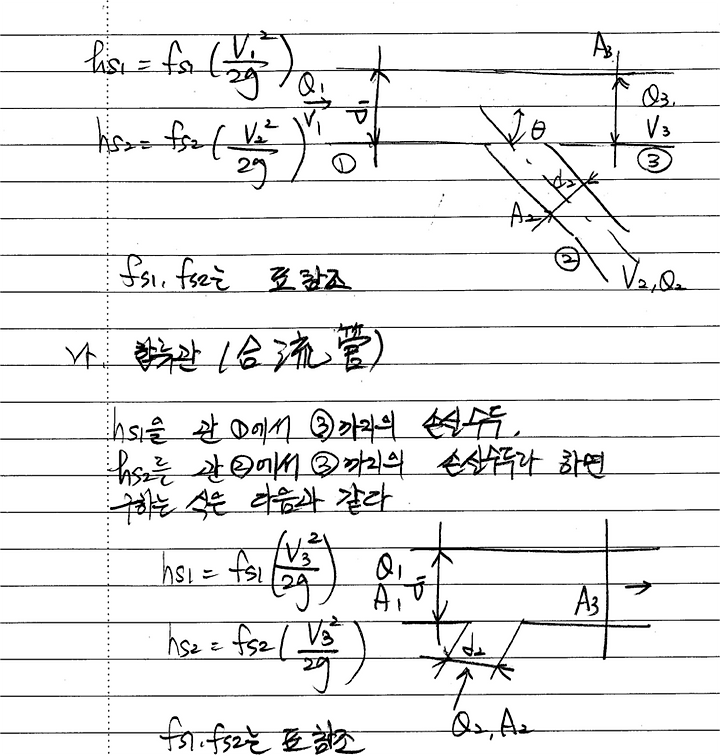 hs1 = fs1 (V1²/2g)
Q1
V1
D
①
hs2 = fs2 (V2²/2g)
A3
Q3,
V3
③
θ
d2
A2
②
V2, Q2
fs1, fs2는 표 참조
나. 합류관 (合流管)
hs1을 관 ①에서 ③까지의 손실수두,
hs2를 관 ②에서 ③까지의 손실수두라 하면
구하는 식은 다음과 같다
hs1 = fs1 (V3²/2g)
Q1
A1
D
A3
hs2 = fs2 (V3²/2g)
d2
Q2, A2
fs1, fs2는 표 참조